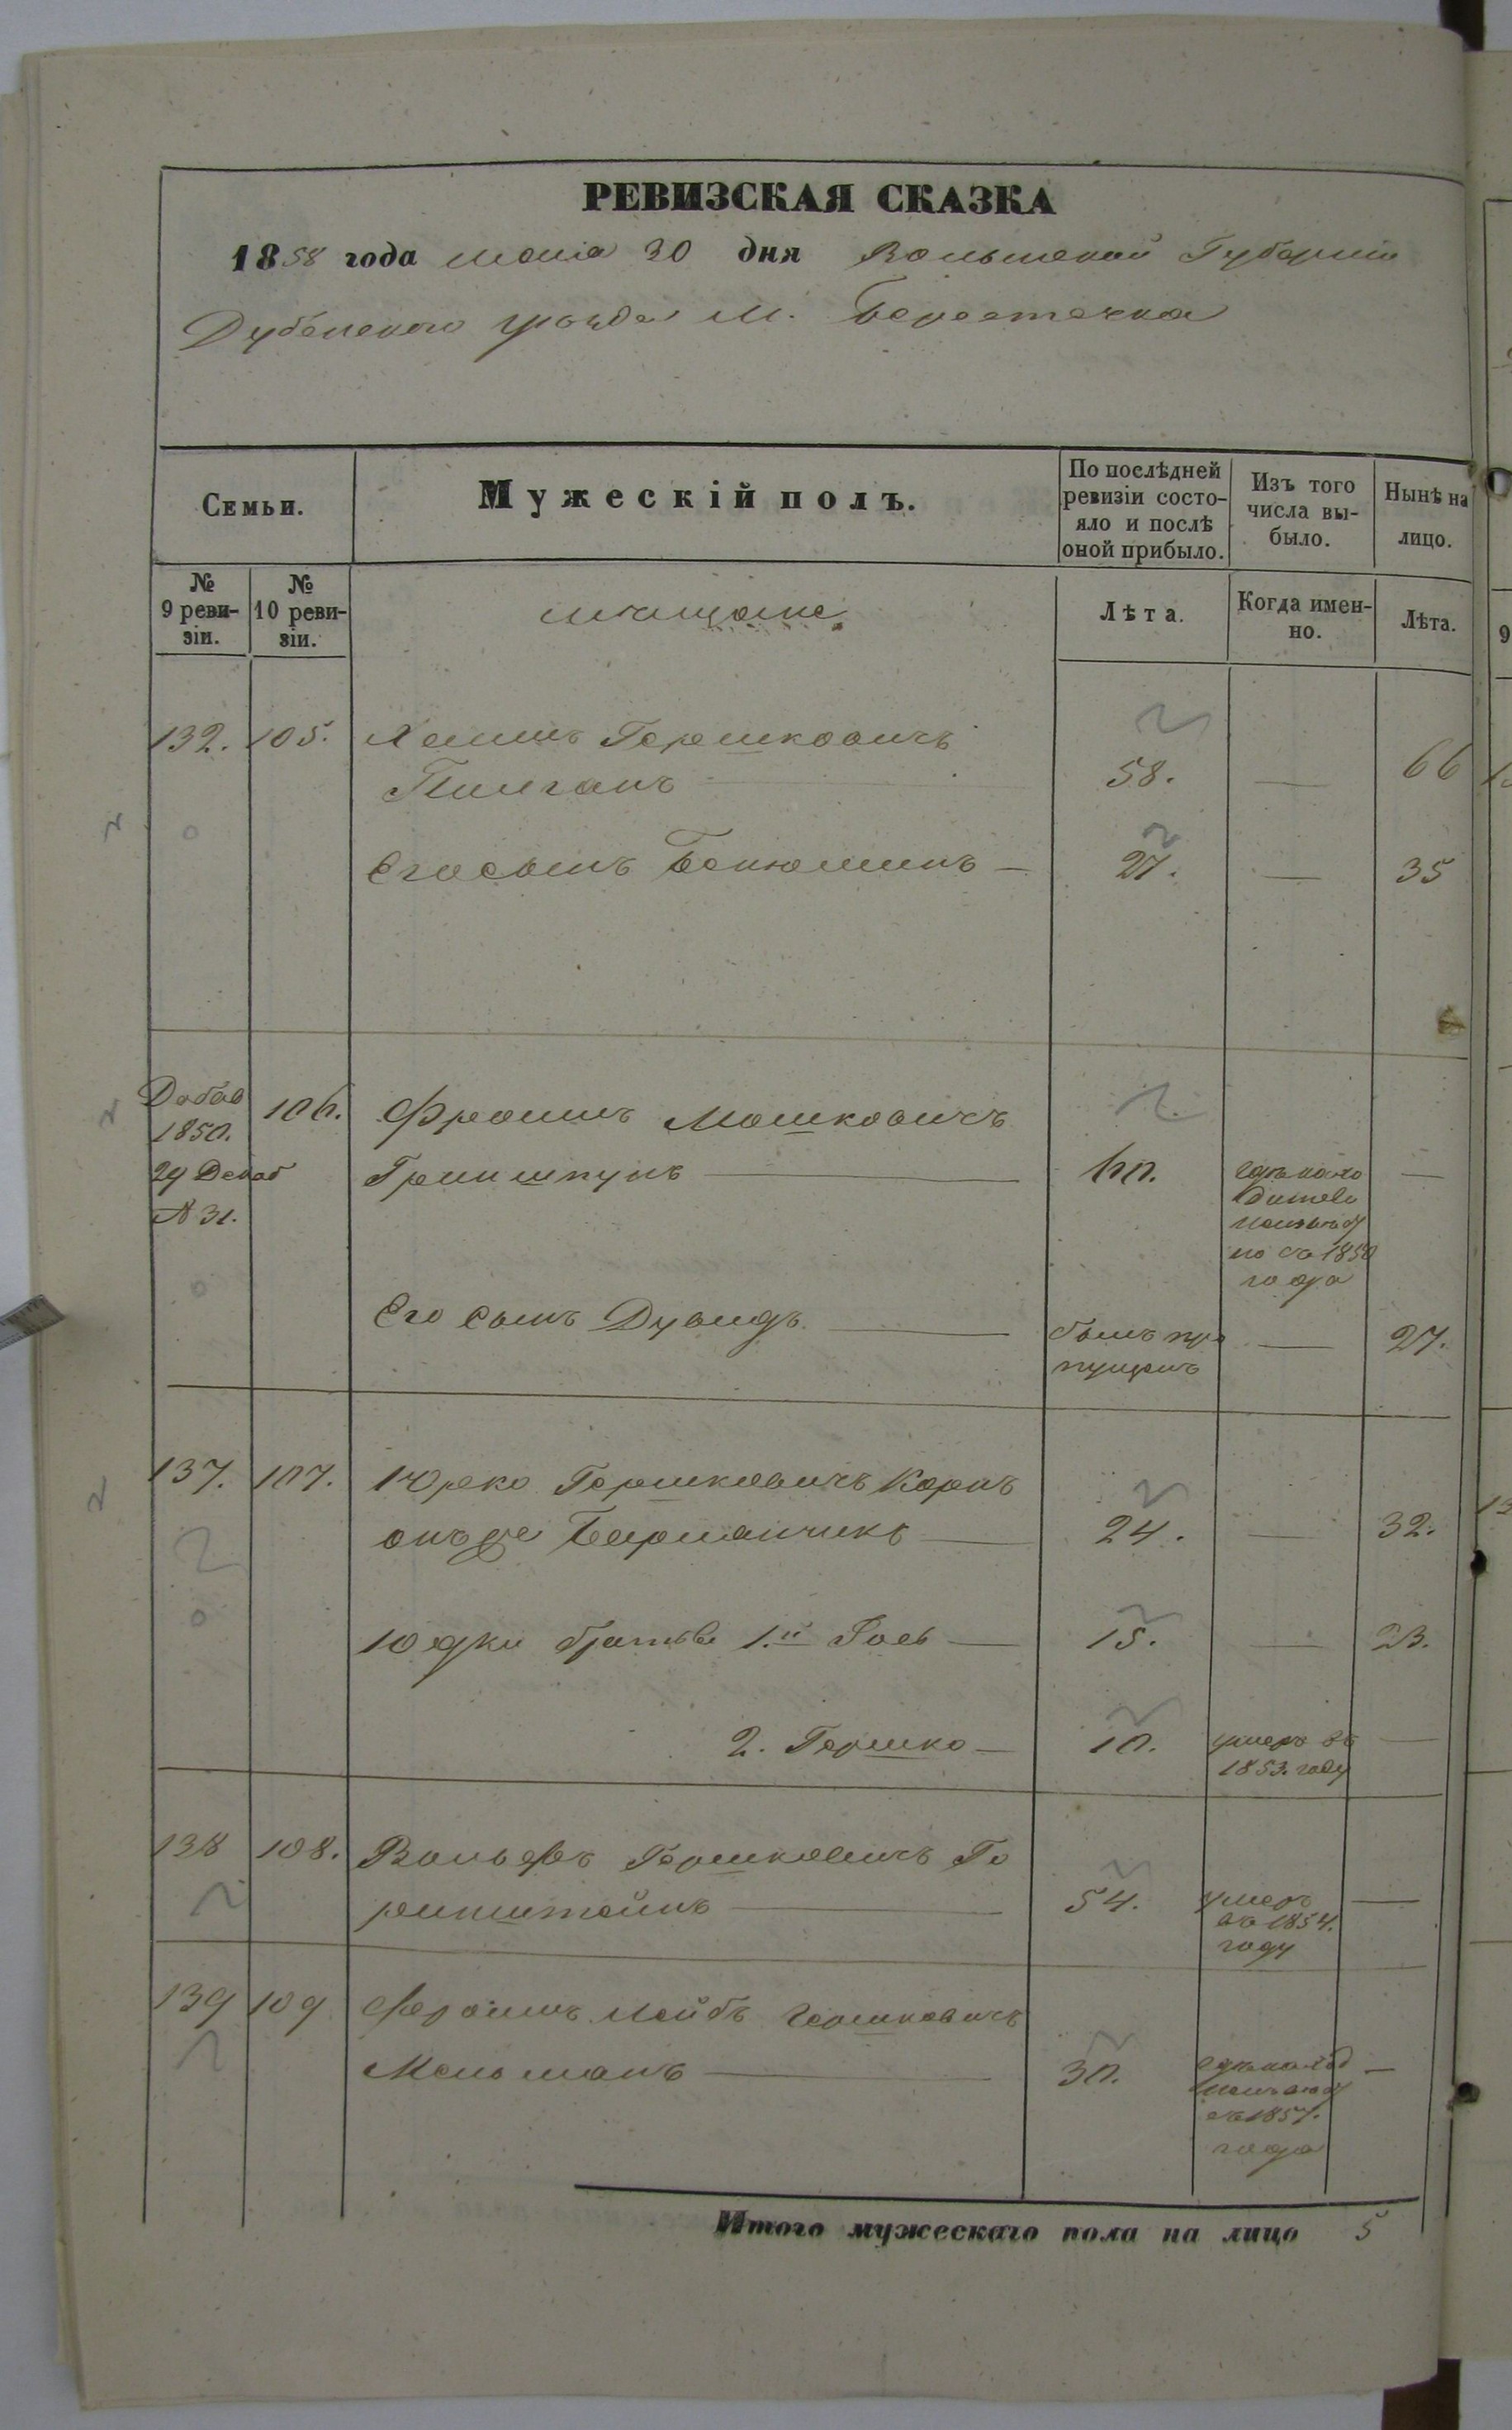 РЕВИЗСКАЯ СКАЗКА
1858 года маія 30 дня Волынской Губерніи
Дубенскаго уѣзда М. Берестечка
Семьи.
Мужескій полъ.
По послѣдней ревизіи состо-
яло и послѣ оной прибыло.
Изъ того числа вы-
было.
Нынѣ на лицо.
№ 9 реви-
зіи.
№ 10 реви-
зіи.
мѣщане.
Лѣта.
Когда имен-
но.
Лѣта.
132. 105. Хаимъ Гершковичъ
58. — 66
Его сынъ Бенюминъ — 27. — 35
Добав 106. Фроимъ Мошковичъ
1850.
29 Декаб
№ 31.
60. —
но съ 1850
года
Его сынъ Дувидъ — былъ про — 27.
пущенъ
137. 107. Юдко Гершковичъ
24. — 32.
Юдки братья 1.й — 15. — 23.
2. Гершко — 10. умеръ въ —
1853. году
138 108. Вольфъ Гершковичъ Го
ренштейнъ — 54. умеръ —
въ 1854.
году
139 109 Фроимъ Лейбъ Гершковичъ
Мельманъ — 30. —
съ 1857.
года
Итого мужескаго пола на лицо 5